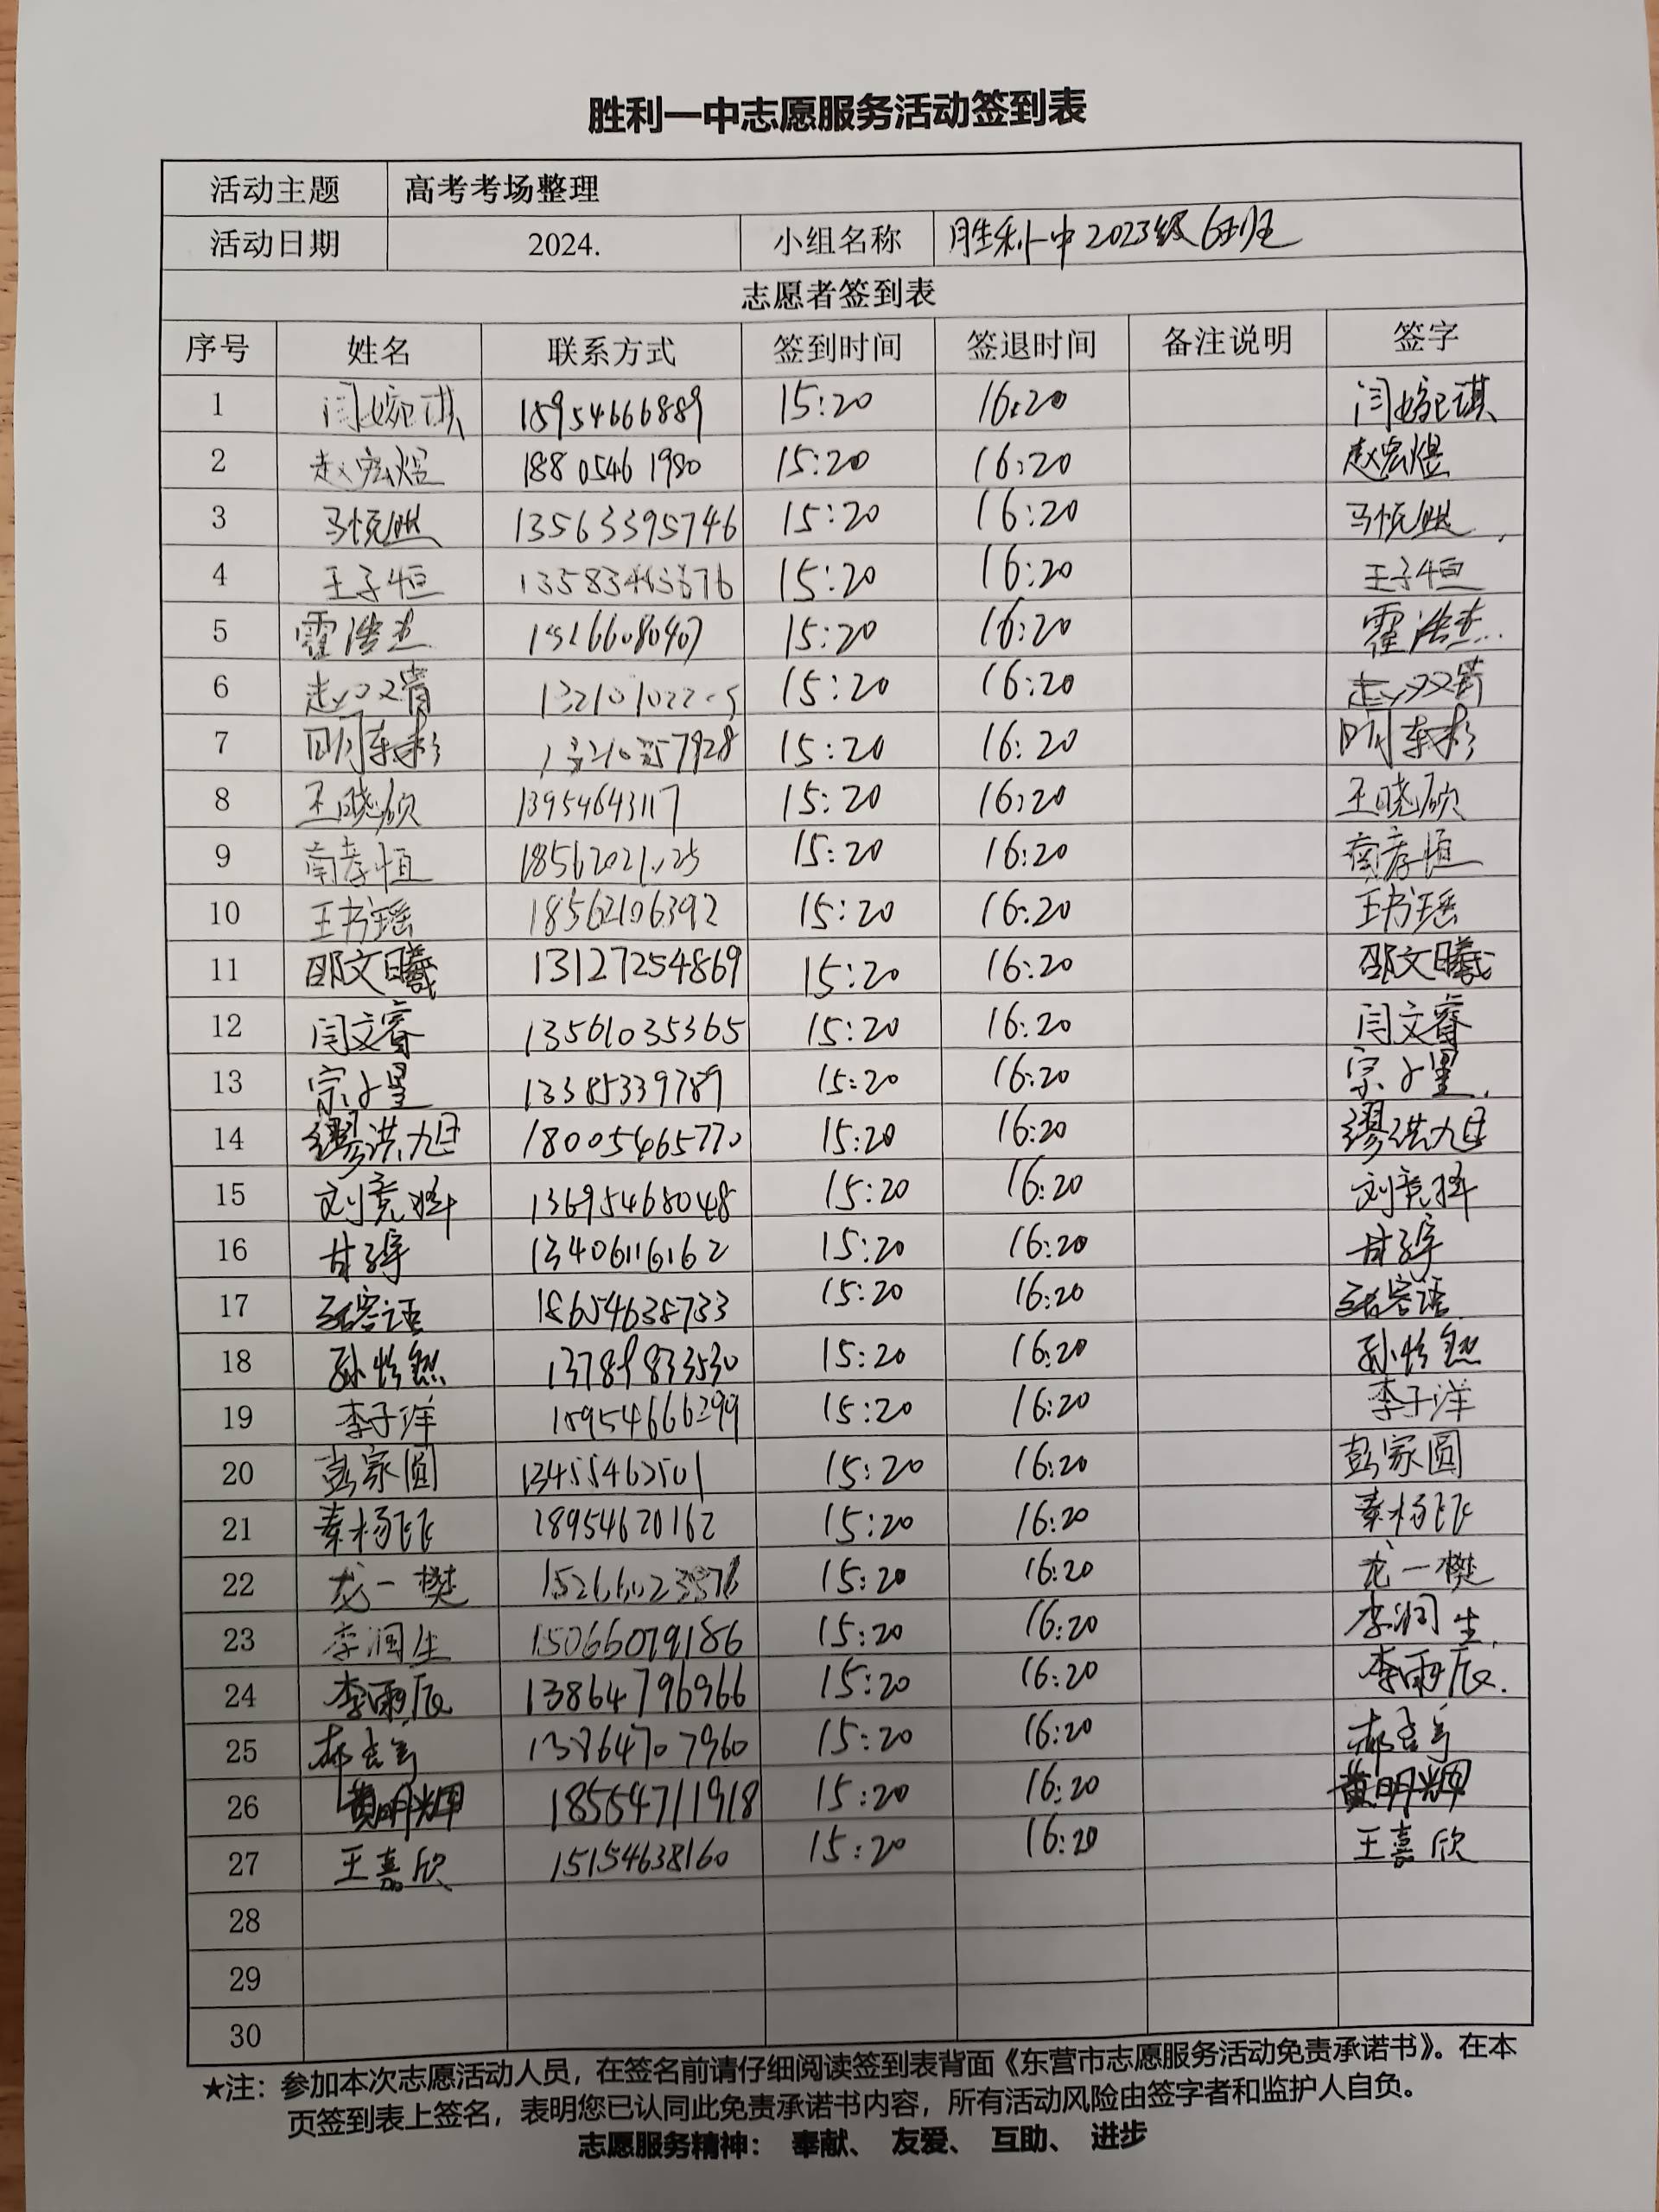 胜利一中志愿服务活动签到表
活动主题 高考考场整理
活动日期 2024. 小组名称 胜利一中2023级6班
志愿者签到表
序号 姓名 联系方式 签到时间 签退时间 备注说明 签字
1 闫婉琪 18954666889 15:20 16:20 闫婉琪
2 赵宏煜 18805461980 15:20 16:20 赵宏煜
3 马悦 13563395746 15:20 16:20 马悦
4 王子恒 15:20 16:20 王子恒
5 霍浩杰 15266080407 15:20 16:20 霍浩杰
6 赵双青 15:20 16:20 赵双青
7 15:20 16:20
8 王晓颀 13954643117 15:20 16:20 王晓颀
9 南孝恒 15:20 16:20 南孝恒
10 王书瑶 18562106392 15:20 16:20 王书瑶
11 邵文曦 13127254869 15:20 16:20 邵文曦
12 闫文睿 13561035365 15:20 16:20 闫文睿
13 宗子星 13385339789 15:20 16:20 宗子星
14 缪洪旭 18005465770 15:20 16:20 缪洪旭
15 刘竞择 13695468048 15:20 16:20 刘竞择
16 甘 13406116162 15:20 16:20 甘
17 容语 18654638733 15:20 16:20 容语
18 孙怜然 13789833530 15:20 16:20 孙怜然
19 李子洋 18954666299 15:20 16:20 李子洋
20 彭家圆 13455462501 15:20 16:20 彭家圆
21 秦杨飞 18954620162 15:20 16:20 秦杨飞
22 龙一樊 15:20 16:20 龙一樊
23 李润生 15066079186 15:20 16:20 李润生
24 李雨辰 13864796966 15:20 16:20 李雨辰
25 郝 13864707960 15:20 16:20 郝
26 黄明辉 18554711918 15:20 16:20 黄明辉
27 王嘉欣 15154638160 15:20 16:20 王嘉欣
28
29
30
★注：参加本次志愿活动人员，在签名前请仔细阅读签到表背面《东营市志愿服务活动免责承诺书》。在本
页签到表上签名，表明您已认同此免责承诺书内容，所有活动风险由签字者和监护人自负。
志愿服务精神： 奉献、 友爱、 互助、 进步